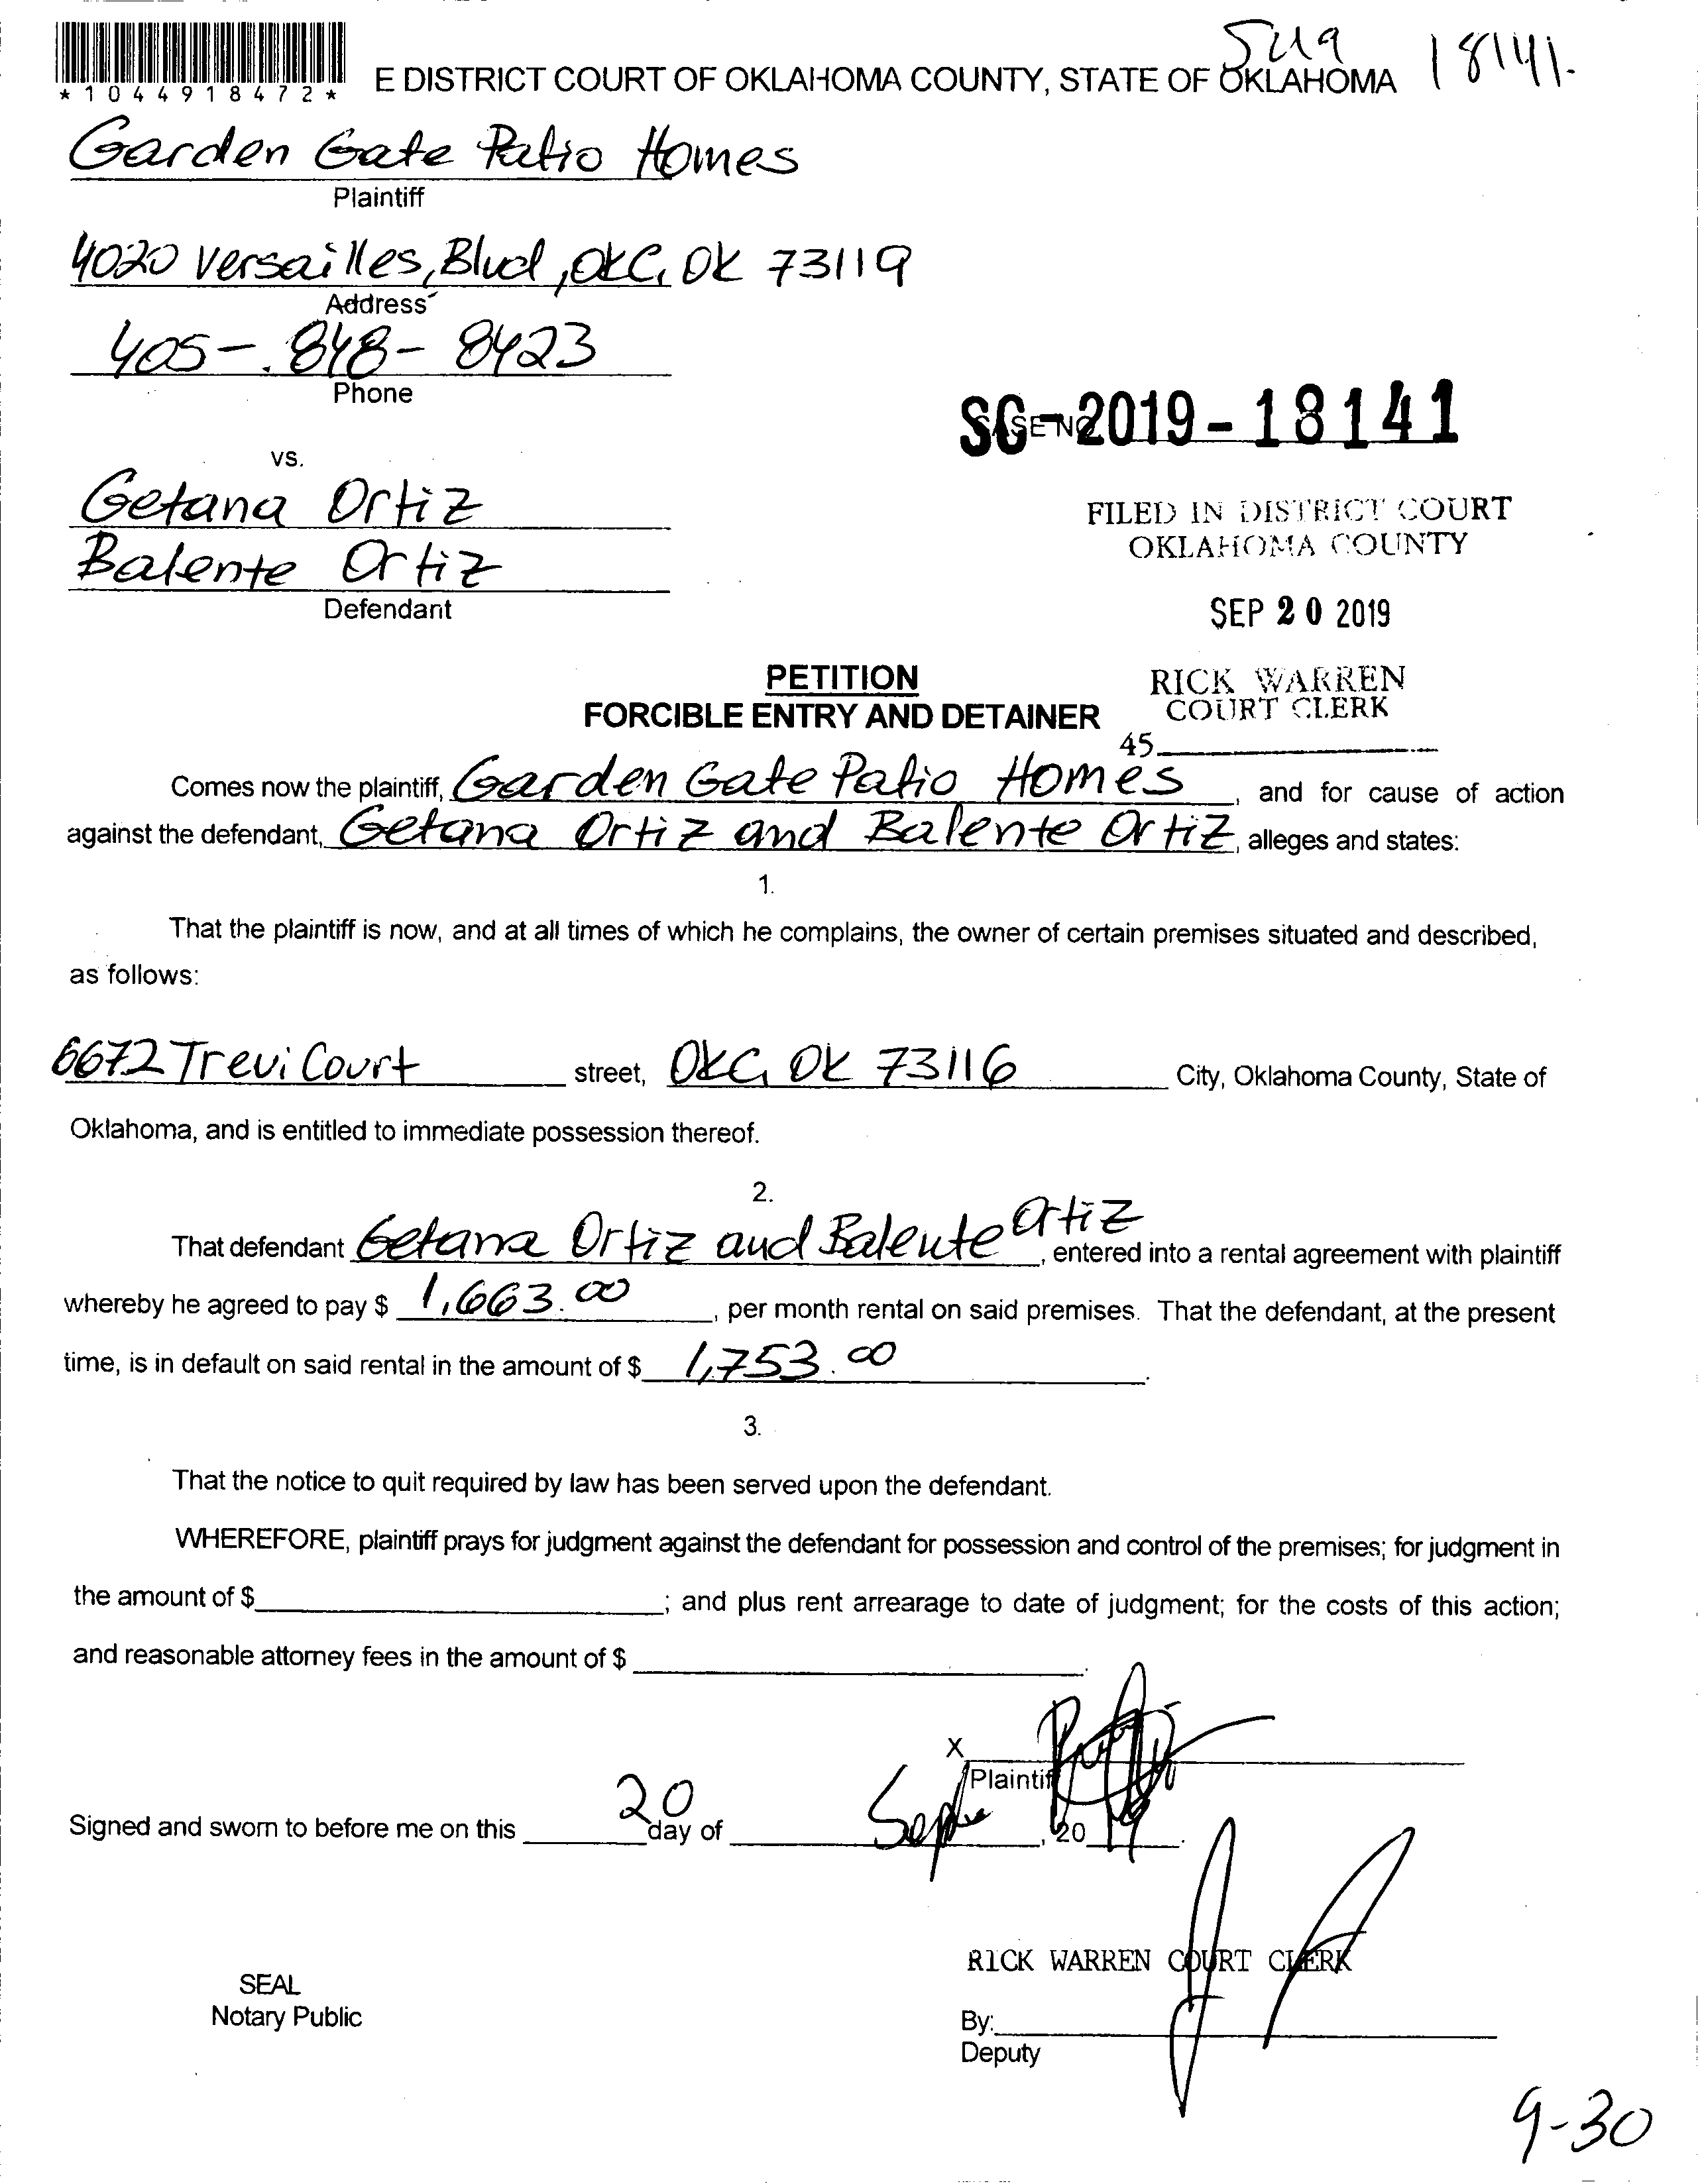 Sug 18141.
*1044918472* E DISTRICT COURT OF OKLAHOMA COUNTY, STATE OF OKLAHOMA
Garden Gate Patio Homes
Plaintiff
4020 Versailles, Blvd, OKC, OK 73119
Address
405-848-8423
Phone
SC-2019-18141
CASE NO.
vs.
Getana Ortiz
Balente Ortiz
Defendant
FILED IN DISTRICT COURT
OKLAHOMA COUNTY
SEP 20 2019
RICK WARREN
COURT CLERK
45
PETITION
FORCIBLE ENTRY AND DETAINER
Comes now the plaintiff, Garden Gate Patio Homes, and for cause of action
against the defendant, Getana Ortiz and Balente Ortiz, alleges and states:
1.
That the plaintiff is now, and at all times of which he complains, the owner of certain premises situated and described,
as follows:
6672 Trevi Court street, OKC, OK 73116 City, Oklahoma County, State of
Oklahoma, and is entitled to immediate possession thereof.
2.
That defendant Getana Ortiz and Balente Ortiz, entered into a rental agreement with plaintiff
whereby he agreed to pay $ 1,663.00, per month rental on said premises. That the defendant, at the present
time, is in default on said rental in the amount of $ 1,753.00.
3.
That the notice to quit required by law has been served upon the defendant.
WHEREFORE, plaintiff prays for judgment against the defendant for possession and control of the premises; for judgment in
the amount of $; and plus rent arrearage to date of judgment; for the costs of this action;
and reasonable attorney fees in the amount of $.
X
Plaintiff
Signed and sworn to before me on this 20 day of Septe, 2019.
RICK WARREN COURT CLERK
SEAL
Notary Public
By:
Deputy
9-30